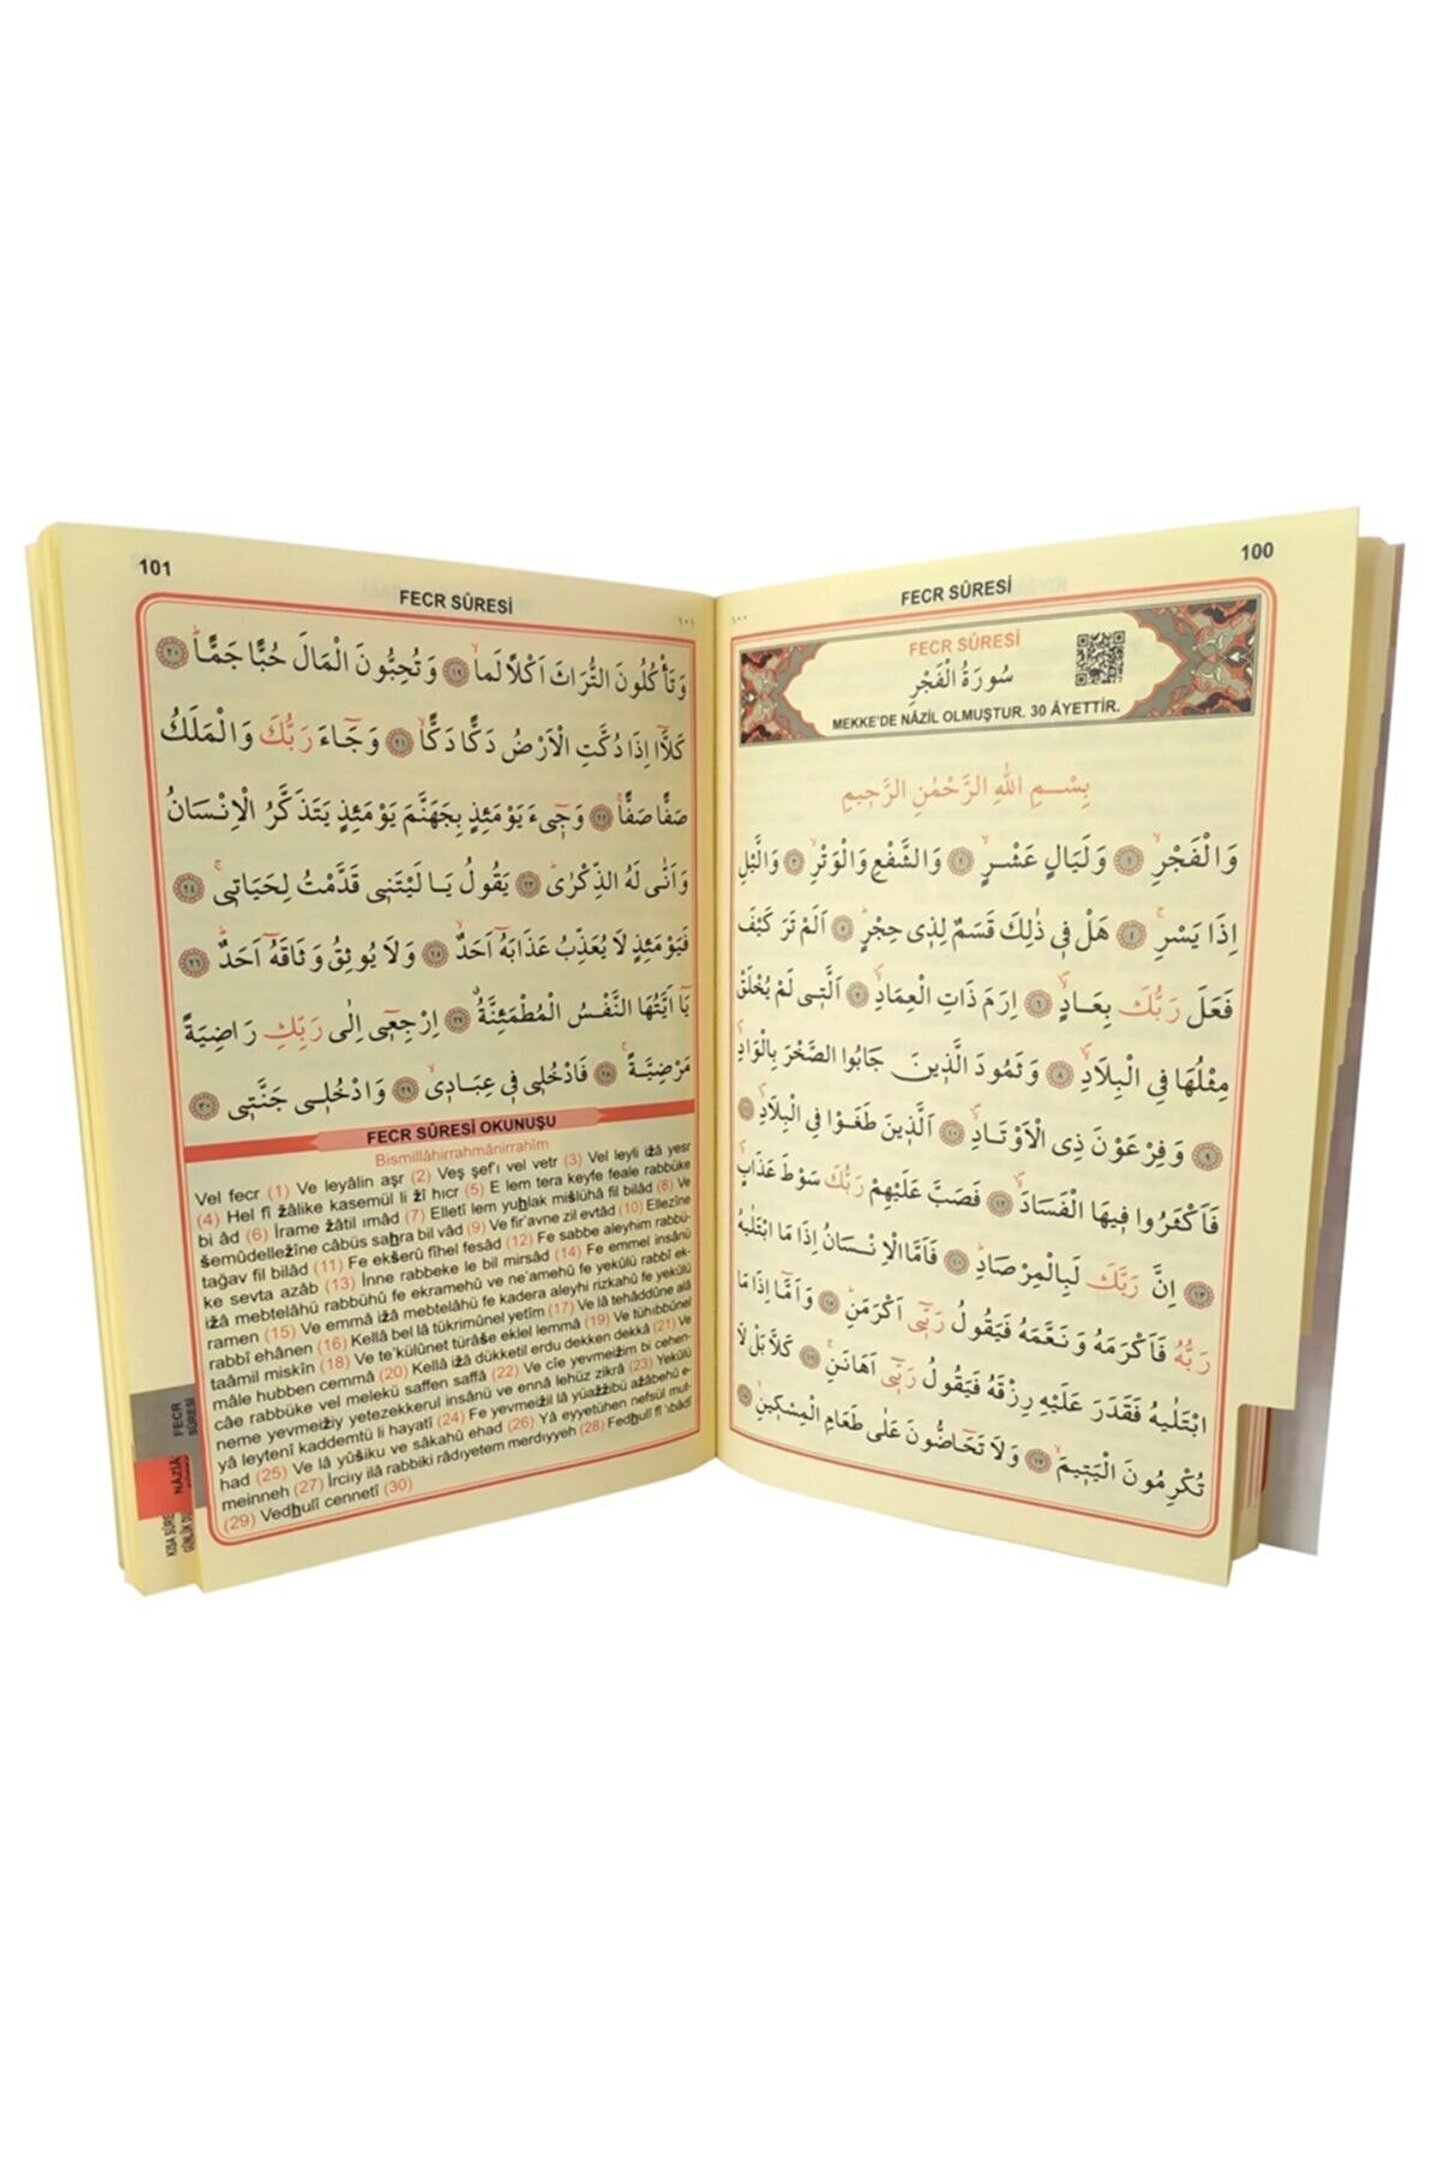 100
FECR SÛRESİ
١٠٠
FECR SÛRESİ
سُورَةُ الْفَجْرِ
MEKKE'DE NÂZİL OLMUŞTUR. 30 ÂYETTİR.
بِسْــمِ اللّٰهِ الرَّحْمٰنِ الرَّحٖيمِ
وَالْفَجْرِۙ ﴿١﴾ وَلَيَالٍ عَشْرٍۙ ﴿٢﴾ وَالشَّفْعِ وَالْوَتْرِۙ ﴿٣﴾ وَالَّيْلِ
اِذَا يَسْرِۚ ﴿٤﴾ هَلْ فٖي ذٰلِكَ قَسَمٌ لِذٖي حِجْرٍؕ ﴿٥﴾ اَلَمْ تَرَ كَيْفَ
فَعَلَ رَبُّكَ بِعَادٍۙ ﴿٦﴾ اِرَمَ ذَاتِ الْعِمَادِۙ ﴿٧﴾ اَلَّتٖي لَمْ يُخْلَقْ
مِثْلُهَا فِي الْبِلَادِۙ ﴿٨﴾ وَثَمُودَ الَّذٖينَ جَابُوا الصَّخْرَ بِالْوَادِۙ
﴿٩﴾ وَفِرْعَوْنَ ذِي الْاَوْتَادِۙ ﴿١٠﴾ اَلَّذٖينَ طَغَوْا فِي الْبِلَادِۙ ﴿١١﴾
فَاَكْثَرُوا فٖيهَا الْفَسَادَۙ ﴿١٢﴾ فَصَبَّ عَلَيْهِمْ رَبُّكَ سَوْطَ عَذَابٍۚ
﴿١٣﴾ اِنَّ رَبَّكَ لَبِالْمِرْصَادِؕ ﴿١٤﴾ فَاَمَّا الْاِنْسَانُ اِذَا مَا ابْتَلٰيهُ
رَبُّهُ فَاَكْرَمَهُ وَنَعَّمَهُ فَيَقُولُ رَبّٖٓي اَكْرَمَنِؕ ﴿١٥﴾ وَاَمَّٓا اِذَا مَا
ابْتَلٰيهُ فَقَدَرَ عَلَيْهِ رِزْقَهُ فَيَقُولُ رَبّٖٓي اَهَانَنِۚ ﴿١٦﴾ كَلَّا بَلْ لَا
تُكْرِمُونَ الْيَتٖيمَۙ ﴿١٧﴾ وَلَا تَحَٓاضُّونَ عَلٰى طَعَامِ الْمِسْكٖينِۙ ﴿١٨﴾
101
FECR SÛRESİ
١٠١
وَتَأْكُلُونَ التُّرَاثَ اَكْلًا لَمًّاۙ ﴿١٩﴾ وَتُحِبُّونَ الْمَالَ حُبًّا جَمًّاؕ ﴿٢٠﴾
كَلَّٓا اِذَا دُكَّتِ الْاَرْضُ دَكًّا دَكًّاۙ ﴿٢١﴾ وَجَٓاءَ رَبُّكَ وَالْمَلَكُ
صَفًّا صَفًّاۚ ﴿٢٢﴾ وَجٖٓيءَ يَوْمَئِذٍ بِجَهَنَّمَ يَوْمَئِذٍ يَتَذَكَّرُ الْاِنْسَانُ
وَاَنّٰى لَهُ الذِّكْرٰىؕ ﴿٢٣﴾ يَقُولُ يَا لَيْتَنٖي قَدَّمْتُ لِحَيَاتٖيۚ ﴿٢٤﴾
فَيَوْمَئِذٍ لَا يُعَذِّبُ عَذَابَهُٓ اَحَدٌۙ ﴿٢٥﴾ وَلَا يُوثِقُ وَثَاقَهُٓ اَحَدٌؕ ﴿٢٦﴾
يَٓا اَيَّتُهَا النَّفْسُ الْمُطْمَئِنَّةُۗ ﴿٢٧﴾ اِرْجِعٖٓي اِلٰى رَبِّكِ رَاضِيَةً
مَرْضِيَّةًۚ ﴿٢٨﴾ فَادْخُلٖي فٖي عِبَادٖيۙ ﴿٢٩﴾ وَادْخُلٖي جَنَّتٖي ﴿٣٠﴾
FECR SÛRESİ OKUNUŞU
Bismillâhirrahmânirrahîm
Vel fecr (1) Ve leyâlin aşr (2) Veş şef'ı vel vetr (3) Vel leyli ižâ yesr
(4) Hel fî žâlike kasemül li žî hıcr (5) E lem tera keyfe feale rabbüke
bi âd (6) İrame žâtil ımâd (7) Elletî lem yuhlak mišlühâ fil bilâd (8) Ve
šemûdelležîne câbüs sahra bil vâd (9) Ve fir'avne zil evtâd (10) Ellezîne
tağav fil bilâd (11) Fe ekšerû fîhel fesâd (12) Fe sabbe aleyhim rabbü-
ke sevta azâb (13) İnne rabbeke le bil mirsâd (14) Fe emmel insânü
ižâ mebtelâhü rabbühû fe ekramehû ve ne'amehû fe yekûlü rabbî ek-
ramen (15) Ve emmâ ižâ mebtelâhü fe kadera aleyhi rizkahû fe yekûlü
rabbî ehânen (16) Kellâ bel lâ tükrimûnel yetîm (17) Ve lâ tehâddûne alâ
taâmil miskîn (18) Ve te'külûnet türâše eklel lemmâ (19) Ve tühıbbûnel
mâle hubben cemmâ (20) Kellâ ižâ dükketil erdu dekken dekkâ (21) Ve
câe rabbüke vel melekü saffen saffâ (22) Ve cîe yevmeižim bi cehen-
neme yevmeižiy yetezekkerul insânü ve ennâ lehüz zikrâ (23) Yekûlü
yâ leytenî kaddemtü li hayatî (24) Fe yevmeižil lâ yüažžibü ažâbehû e-
had (25) Ve lâ yûšiku ve sâkahû ehad (26) Yâ eyyetühen nefsül mut-
meinneh (27) İrciıy ilâ rabbiki râdıyetem merdıyyeh (28) Fedhulî fî 'ıbâdî
(29) Vedhulî cennetî (30)
FECR
SÛRESİ
NÂZİÂ
KISA SÛRE